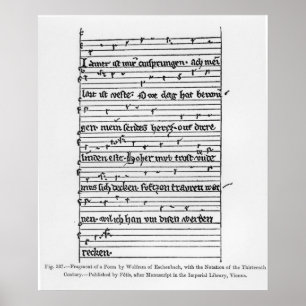 Jamer ist mir entsprungen · ach mei
lait ist veste · Owe dag hat berou
gert mein sendes hercz · auf dirre
linden este · Hoher mut trost
mus sich dicken
nen · wil ich han von disen werden
recken ·
Fig. 337.—Fragment of a Poem by Wolfram of Eschenbach, with the Notation of the Thirteenth
Century.—Published by Fétis, after Manuscript in the Imperial Library, Vienna.